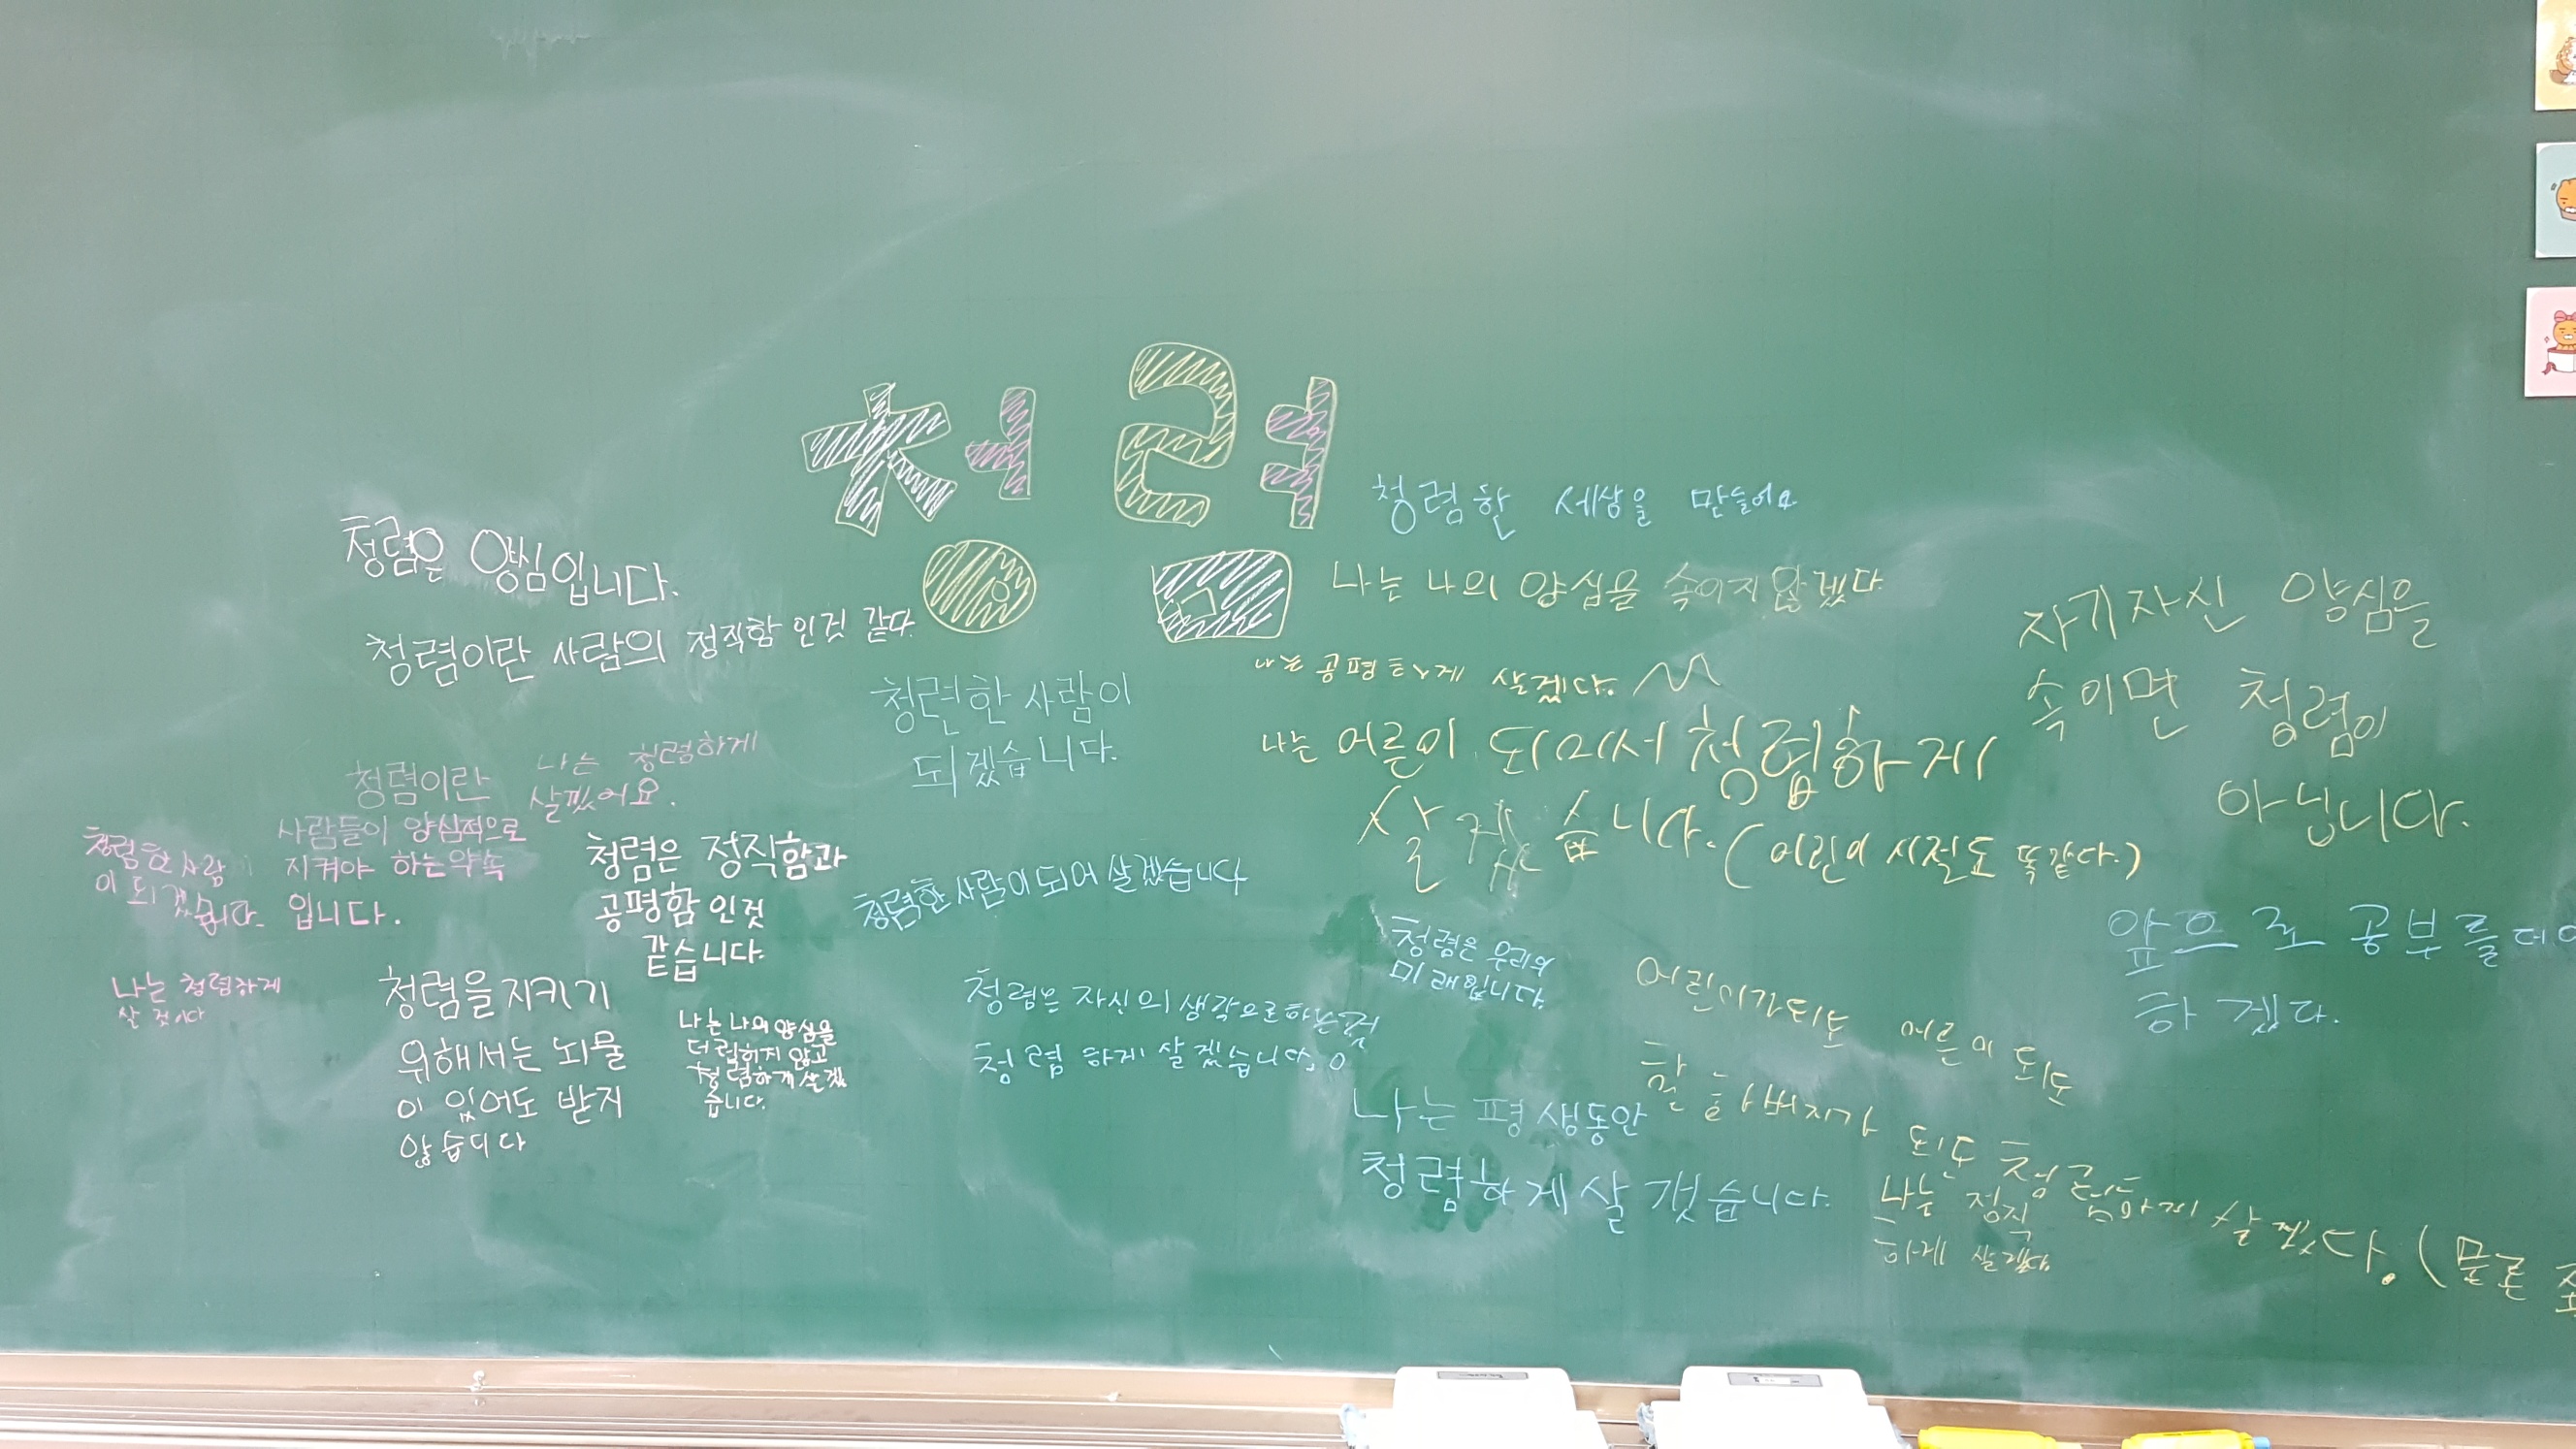 청렴
청렴한 세상을 만들어요
청렴은 양심입니다.
청렴이란 사람의 정직함 인것 같다.
나는 나의 양심을 속이지 않겠다.
나는 공평하게 살겠다.
자기자신 양심을
속이면 청렴이
아닙니다.
청련한 사람이
되겠습니다.
나는 어른이 되어서 청렴하게
살겠습니다. (어린이 시절도 똑같다.)
나는 청렴하게
살겠어요.
청렴이란
사람들이 양심적으로
지켜야 하는약속
입니다.
청렴한 사람
이 되겠습니다.
청렴은 정직함과
공평함 인것
같습니다.
청렴한 사람이 되어 살겠습니다
청렴은 우리의
미래입니다.
앞으로 공부를
하겠다.
나는 청렴하게
살 것이다
청렴을 지키기
위해서는 뇌물
이 있어도 받지
않습니다
나는 나의 양심을
더럽히지 않고
청렴하게 살겠
습니다.
청렴은 자신의 생각으로 하는것
청렴 하게 살겠습니다.
어린이가 되도 어른이 되도
할아버지가 되도 청렴하게 살겠다. (물론
나는 평생동안
청렴하게 살 겠습니다.
나는 정직
하게 살겠다.